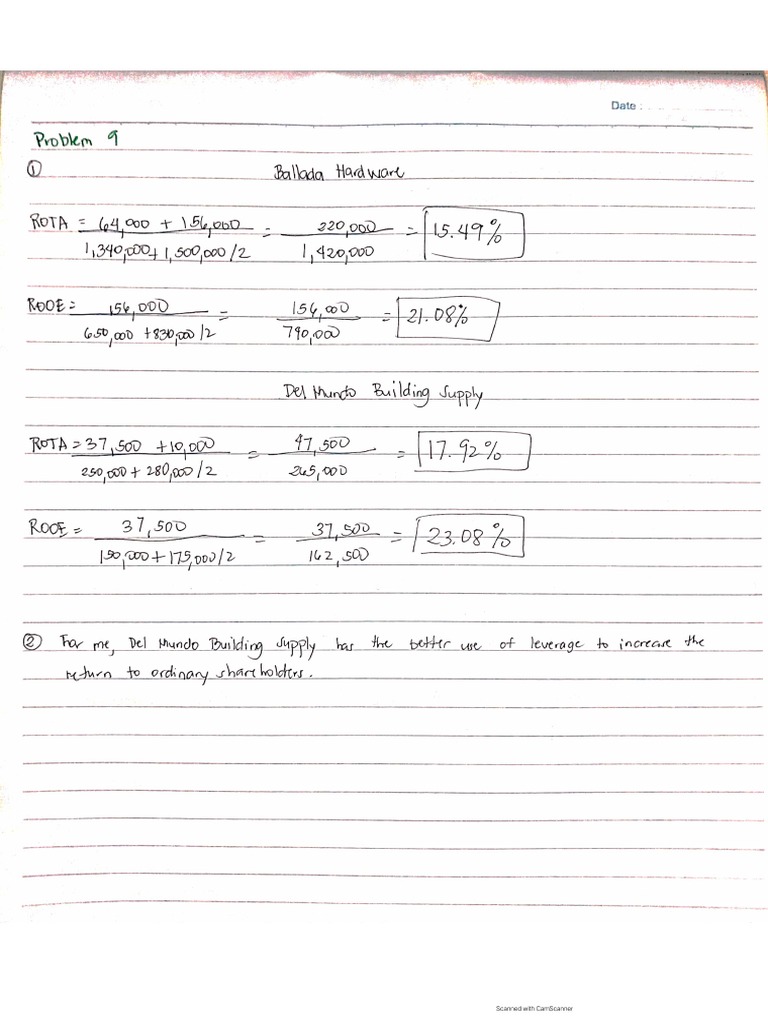 Date :
Problem 9
① Ballada Hardware
ROTA = 64,000 + 156,000 / 1,340,000 + 1,500,000/2 = 220,000 / 1,420,000 = 15.49%
ROOE = 156,000 / 650,000 + 830,000/2 = 156,000 / 790,000 = 21.08%
Del Mundo Building Supply
ROTA = 37,500 + 10,000 / 250,000 + 280,000/2 = 47,500 / 265,000 = 17.92%
ROOE = 37,500 / 150,000 + 175,000/2 = 37,500 / 162,500 = 23.08%
② For me, Del Mundo Building Supply has the better use of leverage to increase the
return to ordinary shareholders.
Scanned with CamScanner